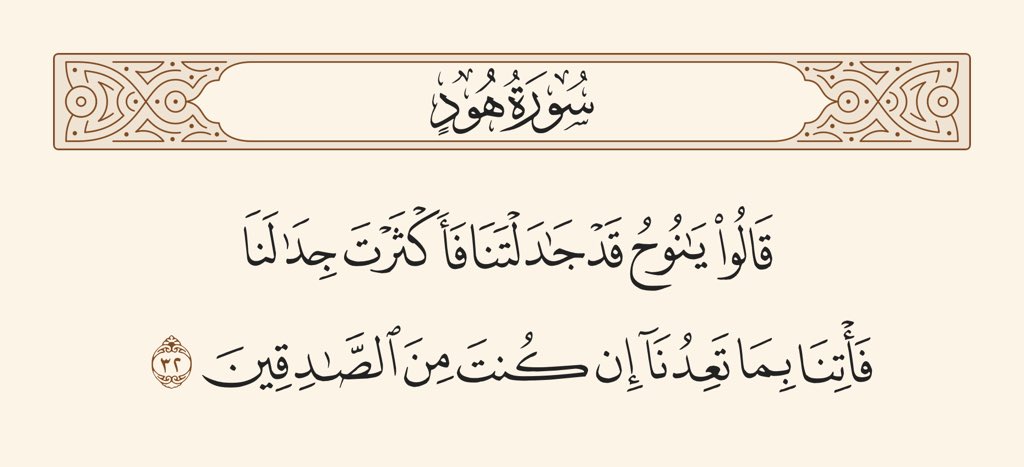 سُورَةُ هُودٍ
قَالُوا۟ يَـٰنُوحُ قَدْ جَـٰدَلْتَنَا فَأَكْثَرْتَ جِدَٰلَنَا
فَأْتِنَا بِمَا تَعِدُنَآ إِن كُنتَ مِنَ ٱلصَّـٰدِقِينَ ٣٢